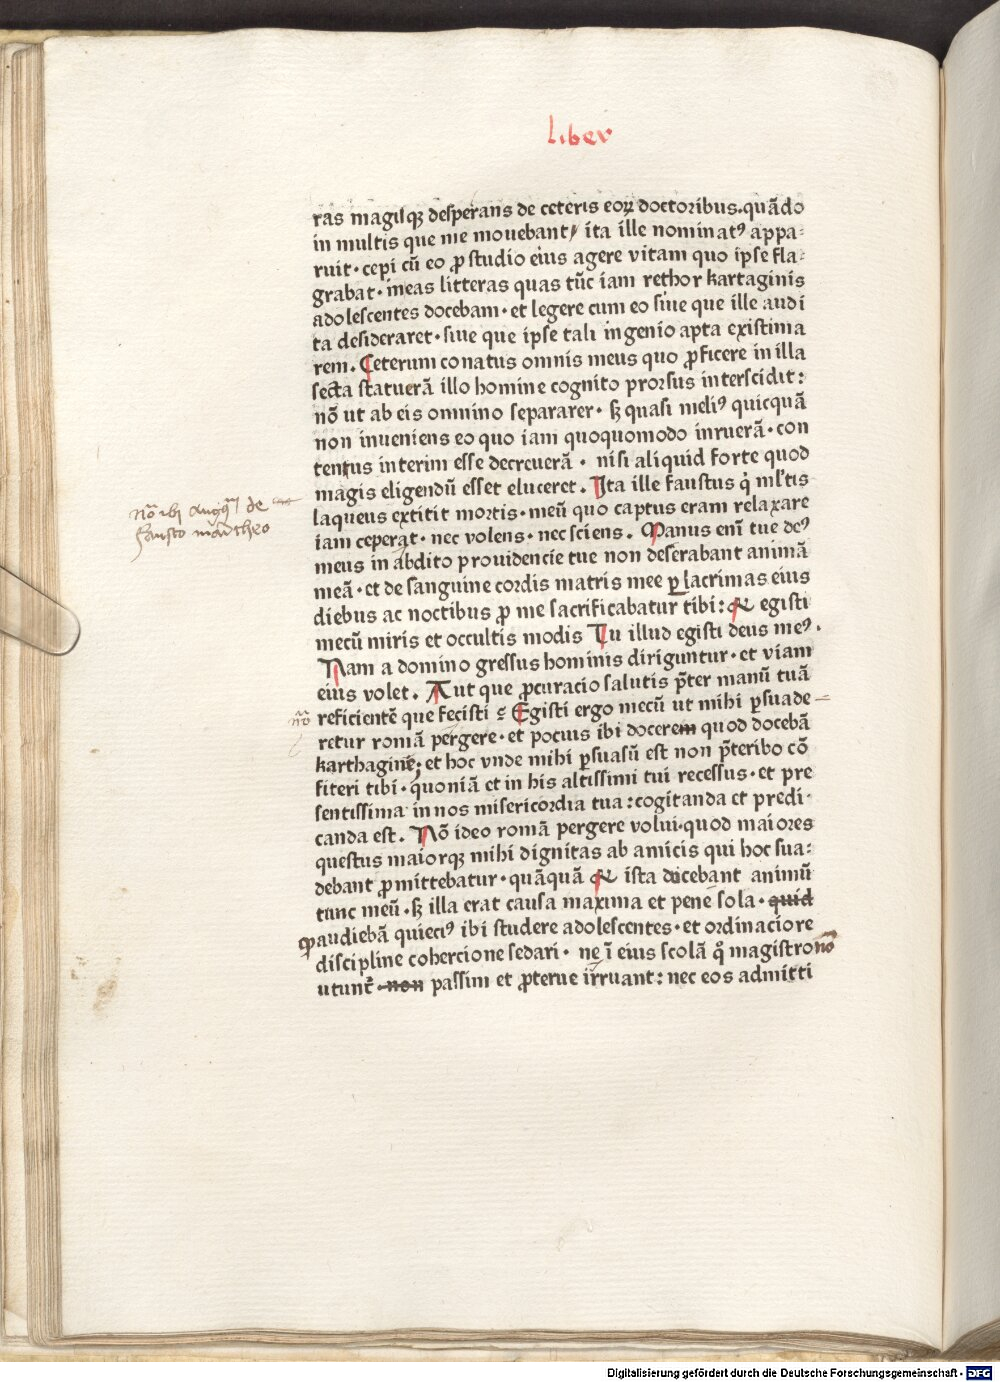 liber
ras magisq; desperans de ceteris eoꝝ doctoribus. quãdo
in multis que me mouebant/ ita ille nominatꝰ appa⸗
ruit · cepi cũ eo ꝓ studio eius agere vitam quo ipse fla⸗
grabat · in eas litteras quas tũc iam rethor kartaginis
adolescentes docebam · et legere cum eo siue que ille audi
ta desideraret · siue que ipse tali ingenio apta existima
rem. Ceterum conatus omnis meus quo ꝓficere in illa
secta statuerã illo homine cognito prorsus interscidit:
nõ ut ab eis omnino separarer · sꝫ quasi meliꝰ quicquã
non inueniens eo quo iam quoquomodo inruerã · con
tentus interim esse decreuerã · nisi aliquid forte quod
magis eligendũ esset eluceret. Ita ille faustus q̇ ml̕tis
laqueus extitit mortis · meũ quo captus eram relaxare
iam ceperat · nec volens · nec sciens. Manus eni̅ tue deꝰ
meus in abdito prouidencie tue non deserabant animã
meã · et de sanguine cordis matris mee ꝑ lacrimas eius
diebus ac noctibus ꝓ me sacrificabatur tibi: & egisti
mecũ miris et occultis modis Tu illud egisti deus meꝰ.
Nam a domino gressus hominis diriguntur · et viam
eius volet. Aut que ꝓcuracio salutis p̃ter manũ tuã
reficientẽ que fecisti ⸗ Egisti ergo mecũ ut mihi ꝑsuade
retur romã pergere · et pocius ibi docerem quod docebã
karthaginẽ; et hoc vnde mihi ꝑsuasũ est non p̃teribo cõ
fiteri tibi · quoniã et in his altissimi tui recessus · et pre
sentissima in nos misericordia tua: cogitanda et predi·
canda est. Nõ ideo romã pergere volui · quod maiores
questus maiorqꝫ mihi dignitas ab amicis qui hoc sua⸗
debant ꝓmittebatur · quãquã & ista ducebant animũ
tunc meũ · sꝫ illa erat causa maxima et pene sola · quid
ꝙ audiebã quieciꝰ ibi studere adolescentes · et ordinaciore
discipline cohercione sedari · ne i̅ eius scolã q̊ magistro nõ
utunt̃ · non passim et ꝓterue irruant: nec eos admitti
nõ ibi augꝰ de
fausto manicheo
nõ